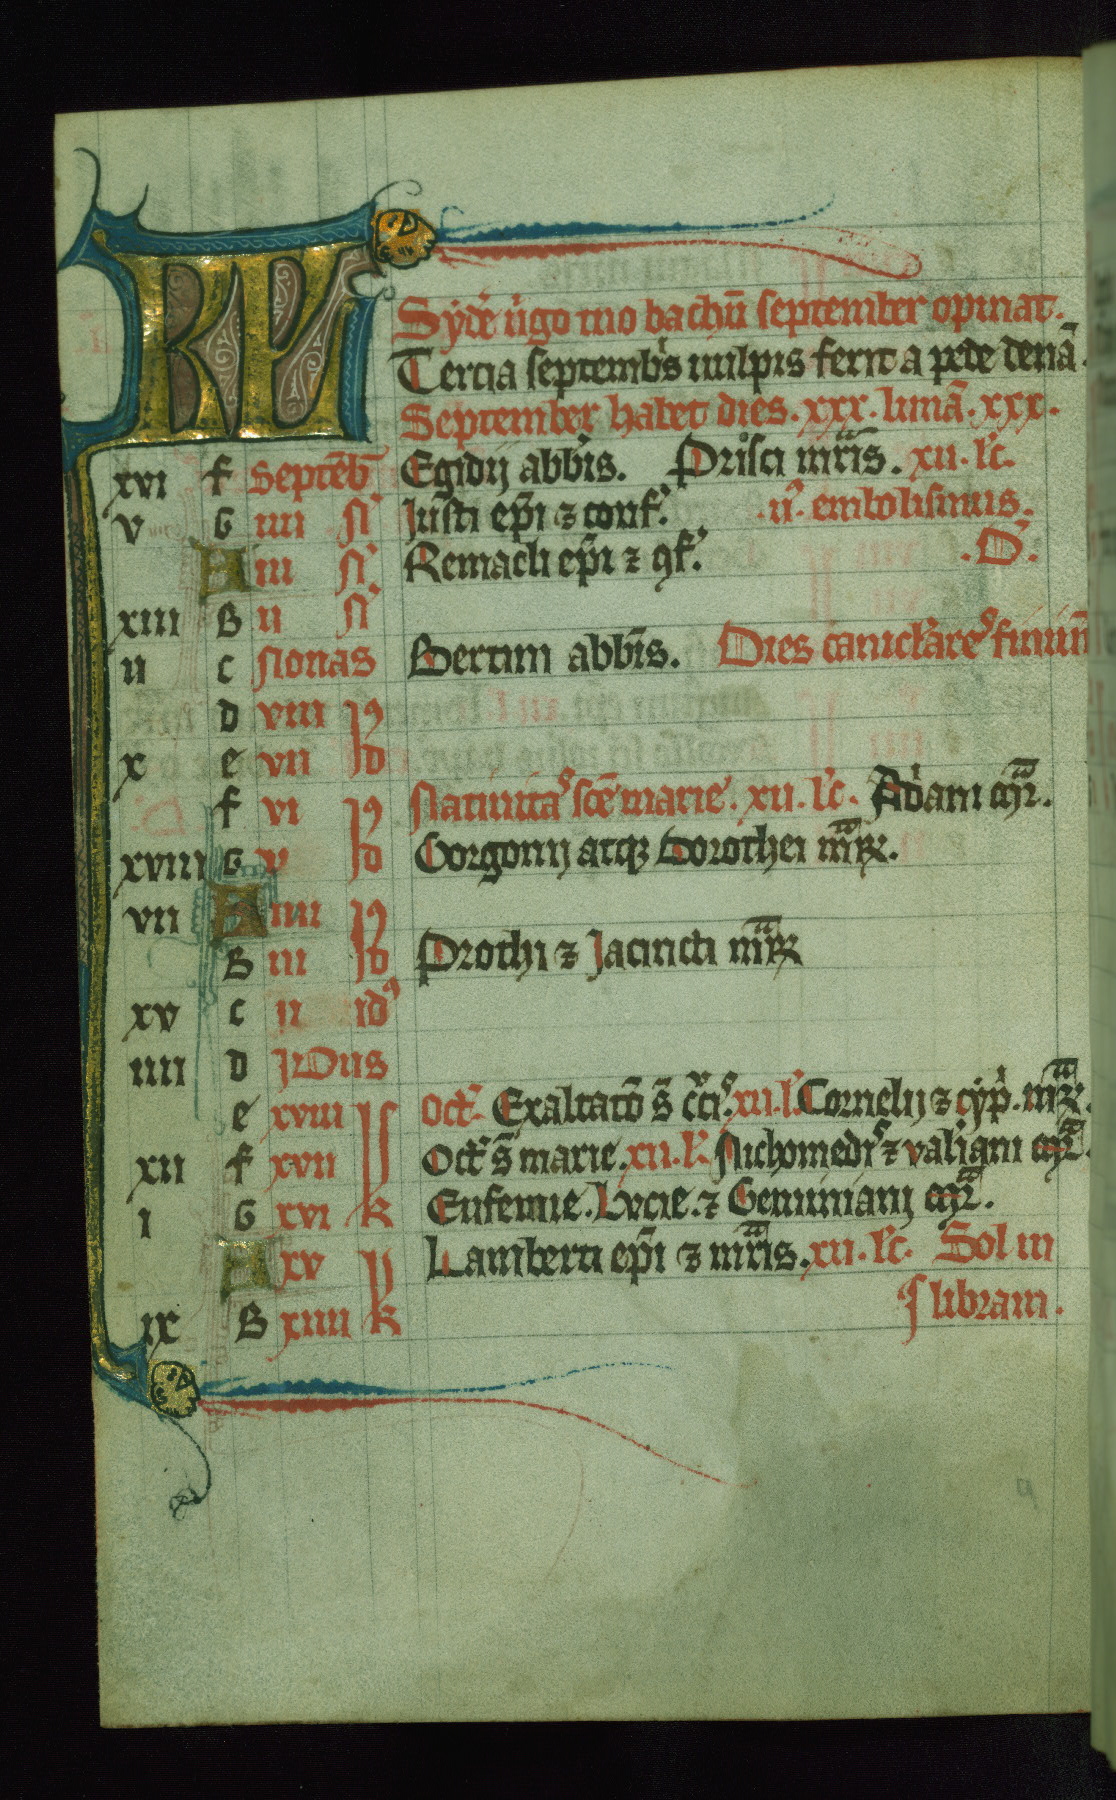 KL
Sydẽ ůgo tuo bachũ september opinat.
Tercia septemb's uulpis ferit a pede denã.
September habet dies. xxx. lunã. xxx.
xvi f Septẽb Egidij abb̃is. Prisci mr̃is. xii. lc̃.
v G iiii N' Justi ep̃i ⁊ conf'. ii' embolismus.
A iii N' Remacli ep̃i ⁊ ɔf'. D'.
xiii B ii N'
ii c Nonas Bertini abb̃is. Dies canicˡares finiun̄
d viii Id
x e vii Id
f vi Id Natiuitaꝰ sc̃e marie. xii. lc̃. Adriani mr̃.
xviii G v Id Gorgonij atqꝫ dorothei mr̃ꝝ.
vii A iiii Id
B iii Id Prothi ⁊ Jacincti mr̃ꝝ
xv c ii idꝰ
iiii d Idus
e xviii K Oct̃. Exaltatõ s̃ c̃cis. xii. l'. Cornelij ⁊ cyp̃. mr̃ꝝ.
xii f xvii K Oct̃ s̃ marie. xii. l'. Nichomedis ⁊ valiani mr̃.
i G xvi K Eufemie. Lucie. ⁊ Geminiani mr̃.
A xv K Lamberti ep̃i ⁊ mr̃is. xii. lc̃. Sol in
ix B xiiii K libram.